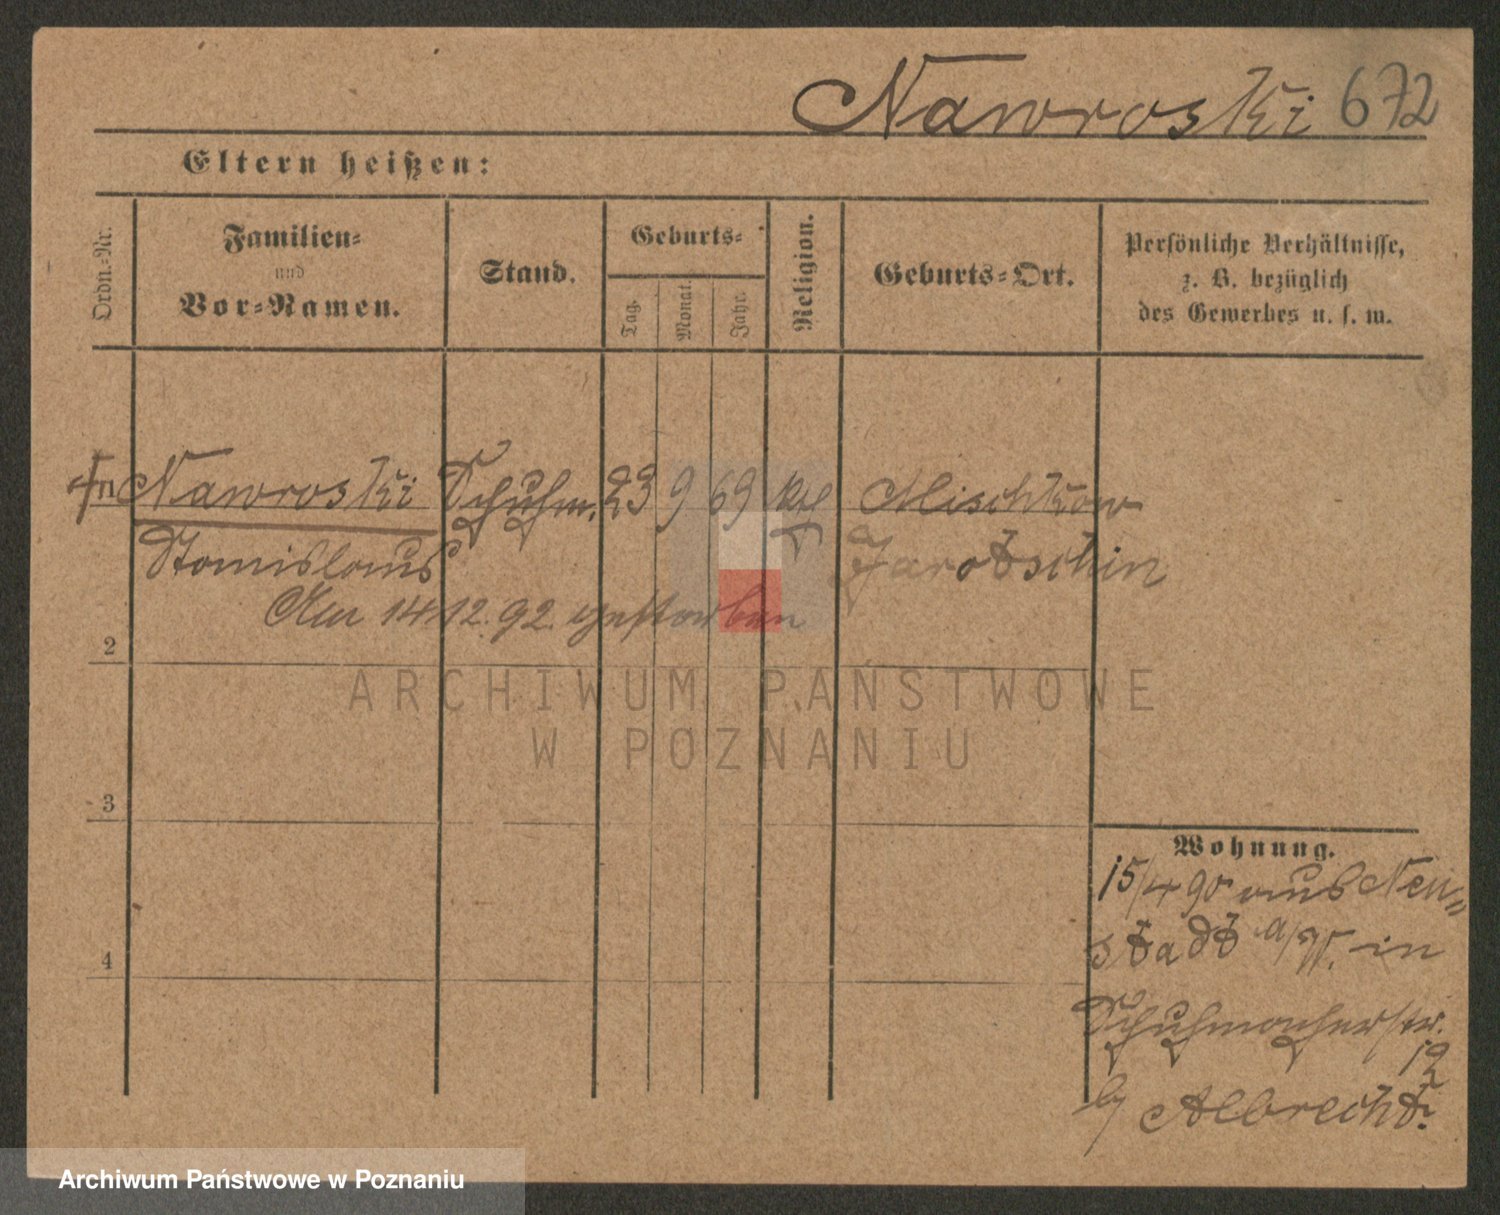 Nawroski 672
Eltern heißen:
Ordn.-Nr.
Familien-
und
Vor-Namen.
Stand.
Geburts-
Tag.
Monat.
Jahr.
Religion.
Geburts-Ort.
Persönliche Verhältnisse,
z. B. bezüglich
des Gewerbes u. s. w.
Nawroski Schuhm. 23 9 69 Mischkow
Stanislaus Jarotschin
Am 14.12.92. gestorben
2
3
4
Wohnung.
15/4 90 aus Neu-
stadt a/W. in
Schuhmacherstr.
12
b/ Albrecht.
ARCHIWUM PAŃSTWOWE
W POZNANIU
Archiwum Państwowe w Poznaniu